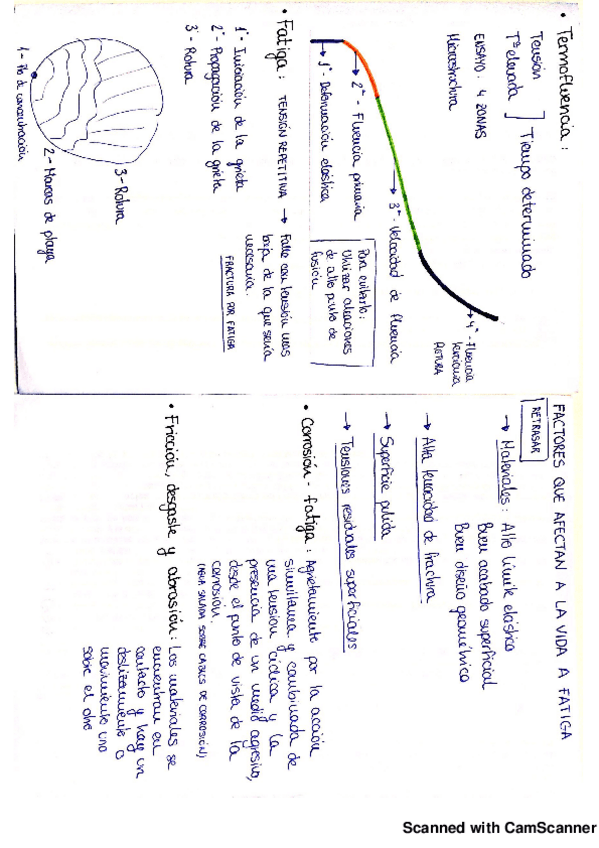 • Termofluencia:
Tensión
Tª elevada
Tiempo determinado
ENSAYO: 4 ZONAS
Microestructura
1ª- Deformación elástica
2ª- Fluencia primaria
3ª- Velocidad de fluencia
4ª- Fluencia
terciaria
ROTURA
Para evitarlo:
Utilizar aleaciones
de alto punto de
fusión
• Fatiga: TENSIÓN REPETITIVA → Falle con tensión más
baja de la que sería
necesaria.
FRACTURA POR FATIGA
1º- Iniciación de la grieta
2º- Propagación de la grieta
3º Rotura
1- Pto de concentración
2- Marcas de playa
3- Rotura
FACTORES QUE AFECTAN A LA VIDA A FATIGA
RETRASAR
→ Materiales: Alto límite elástico
Buen acabado superficial
Buen diseño geométrico
→ Alta tenacidad de fractura
→ Superficie pulida
→ Tensiones residuales superficiales
• Corrosión - fatiga: Agrietamiento por la acción
simultánea y combinada de
una tensión cíclica y la
presencia de un medio agresivo,
desde el punto de vista de la
corrosión.
(AGUA SALADA SOBRE CABLES DE CORROSIÓN)
• Fricción, desgaste y abrasión: Los materiales se
encuentran en
contacto y hay un
deslizamiento o
movimiento uno
sobre el otro
Scanned with CamScanner